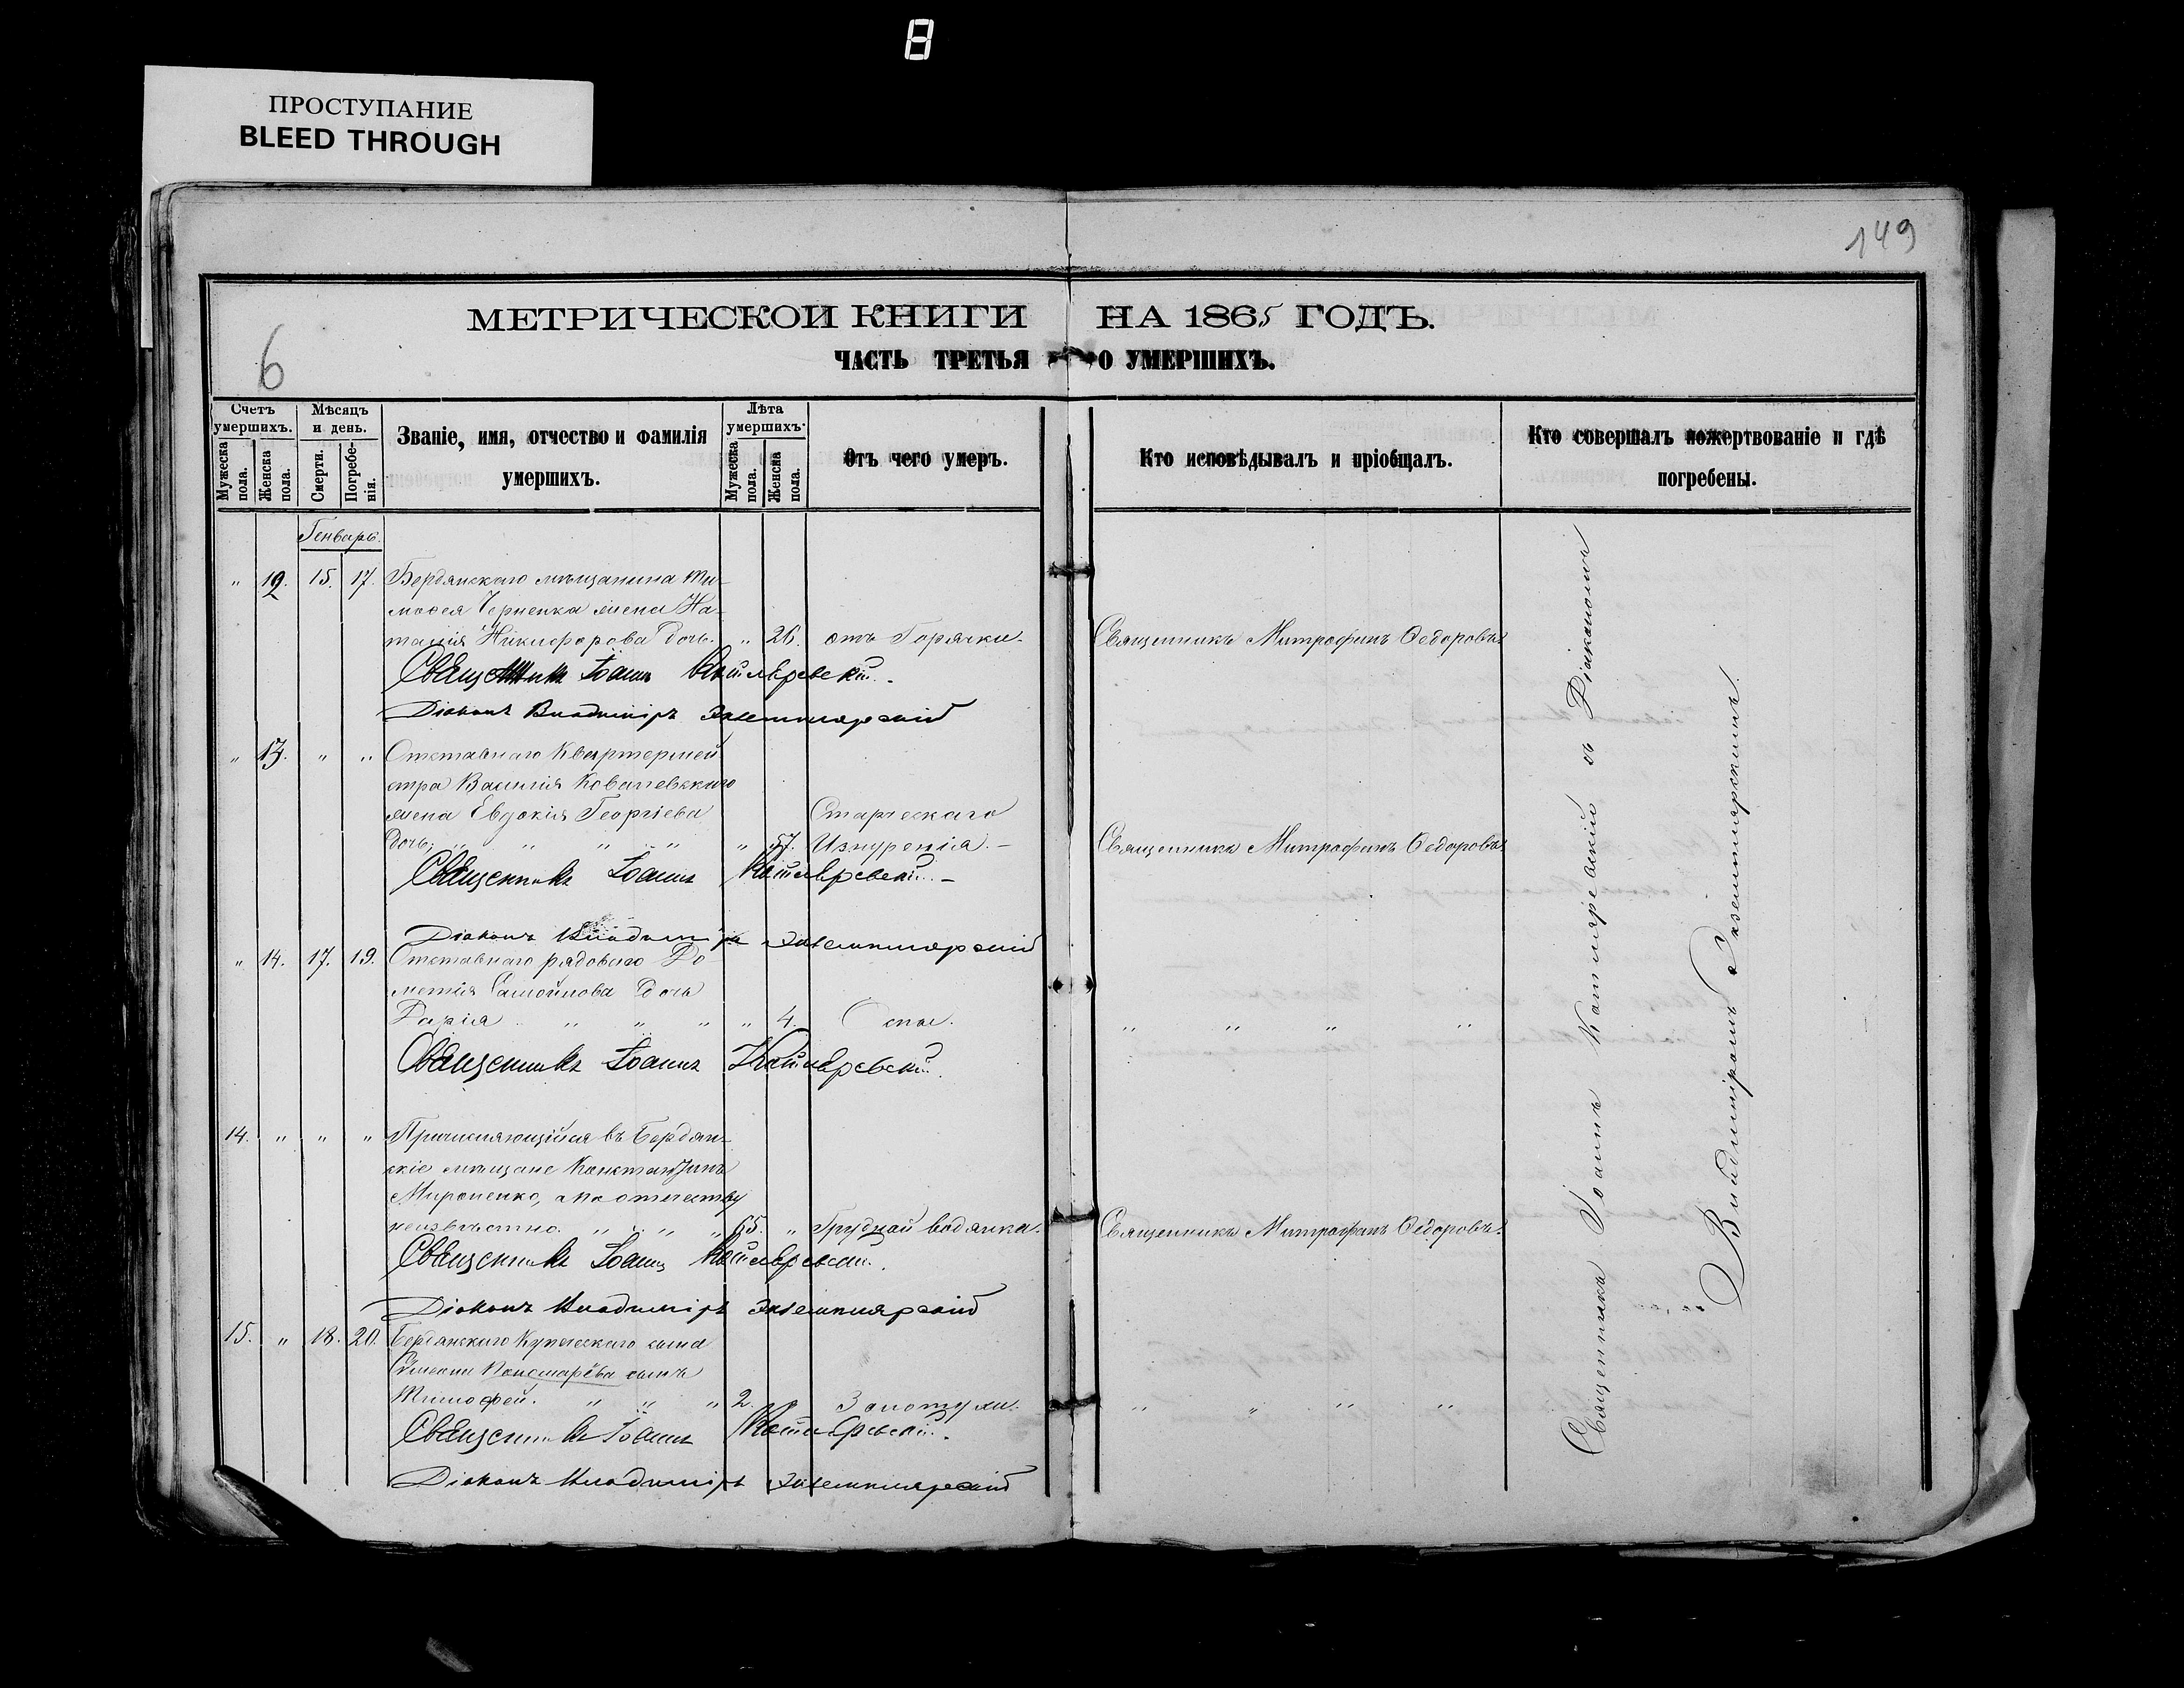 8
ПРОСТУПАНИЕ
BLEED THROUGH
149
6
МЕТРИЧЕСКОЙ КНИГИ НА 1865 ГОДЪ.
ЧАСТЬ ТРЕТЬЯ О УМЕРШИХЪ.
Счетъ умершихъ.
Мужеска пола.
Женска пола.
Мѣсяцъ и день.
Смерти.
Погребенія.
Званіе, имя, отчество и фамилія умершихъ.
Лѣта умершихъ.
Мужеска пола.
Женска пола.
Отъ чего умеръ.
Кто исповѣдывалъ и пріобщалъ.
Кто совершалъ пожертвованіе и гдѣ погребены.
Генварь.
" 12. 15. 17. Бердянскаго мѣщанина Ти-
моѳея Черненка жена На-
талія Никифорова дочь. " 26. отъ Горячки. Священникъ Митрофанъ Ѳедоровъ.
Священникъ Іоаннъ Котляревскій.
Діаконъ Владиміръ Экземплярскій
" 13. " " Отставнаго Квартермей-
стра Василія Ковалевскаго
жена Евдокія Георгіева Старческаго
дочь; " " " " " 57. Изнуренія. Священникъ Митрофанъ Ѳедоровъ.
Священникъ Іоаннъ Котляревскій.
Діаконъ Владиміръ Экземплярскій
" 14. 17. 19. Отставнаго рядоваго
Самойлова дочь
Дарія " " " " 4. Оспы. " " " "
Священникъ Іоаннъ Котляревскій.
14. " " " Причисляющійся въ Бердян-
скіе мѣщане Константинъ
Мироненко, а по отчеству
неизвѣстно. " " " " 65. " Грудной водянки. Священникъ Митрофанъ Ѳедоровъ.
Священникъ Іоаннъ Котляревскій.
Діаконъ Владиміръ Экземплярскій
15. " 18. 20. Бердянскаго Купеческаго сына
Пономарёва сынъ
Тимофей. " " " 2. " Золотухи. " " " "
Священникъ Іоаннъ Котляревскій.
Діаконъ Владиміръ Экземплярскій
Священникъ Іоаннъ Котляревскій съ Діакономъ
Владиміромъ Экземплярскимъ.